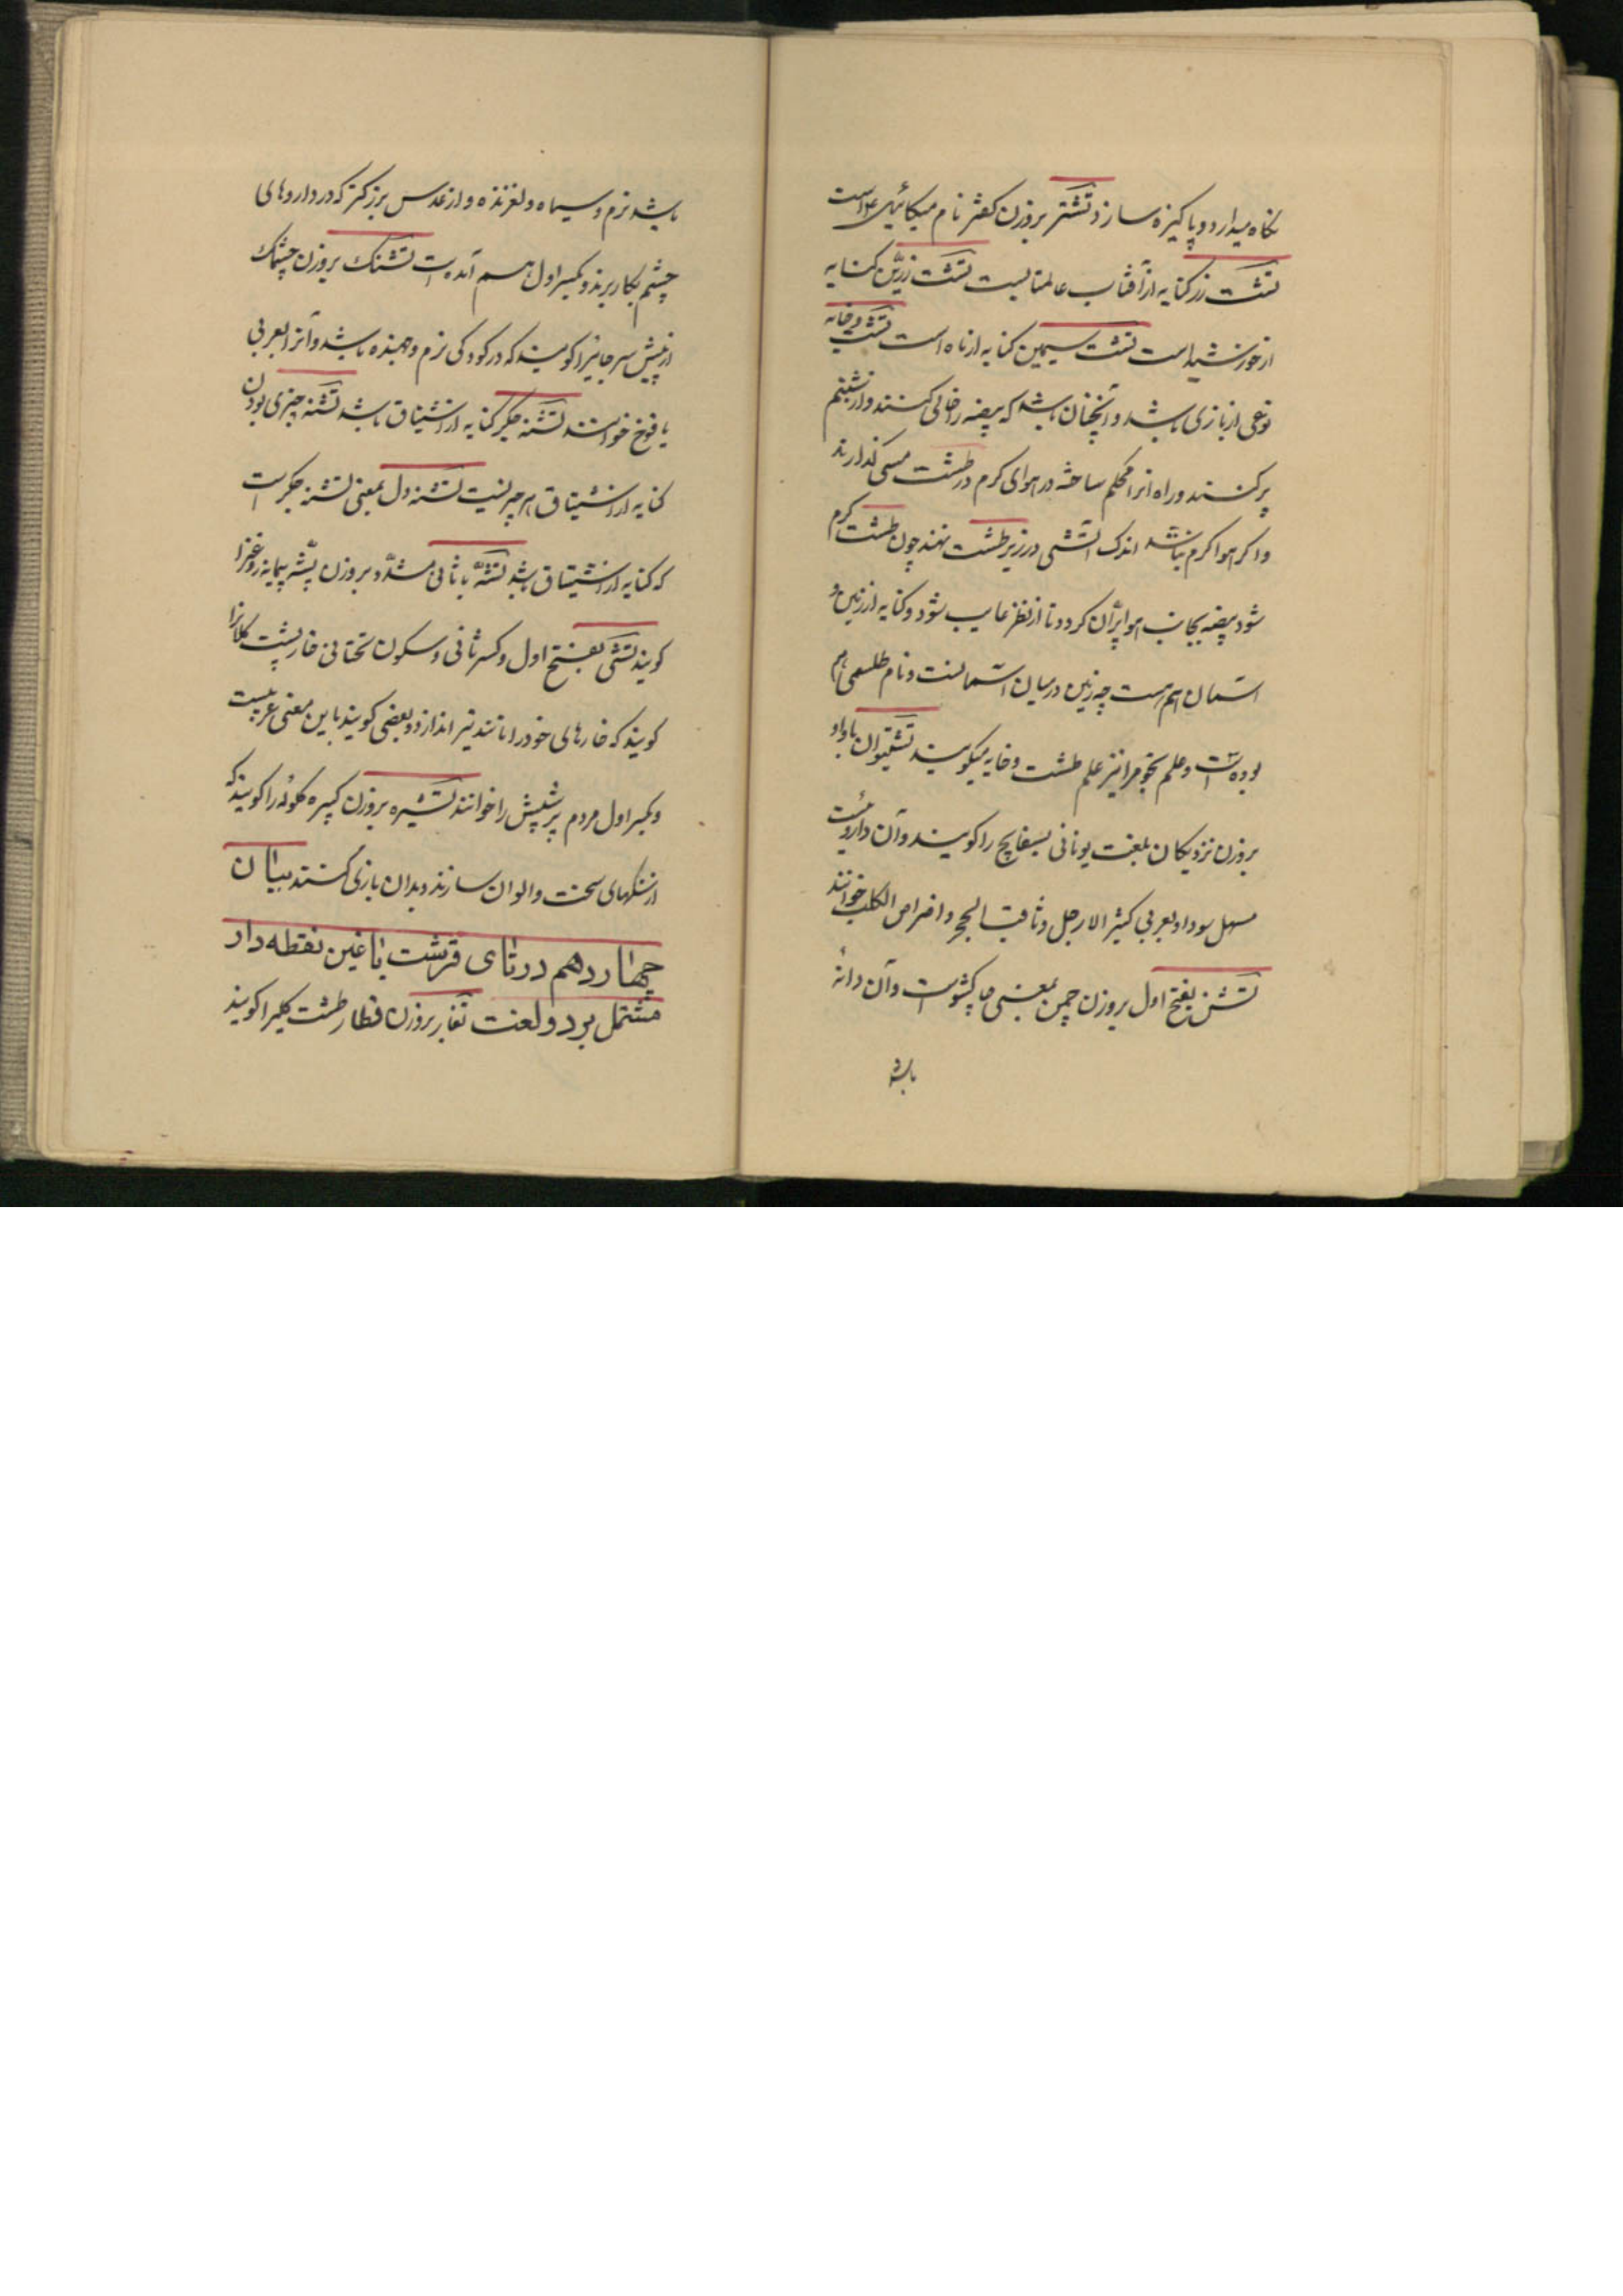 نکاه میدارد و پاکیزه سازد تشتر بروزن کفتر نام میکائیل است
تشت زر کنایه از آفتاب عالمتابست تشت زرین کنایه
از خورشید است تشت سیمین کنایه از ماه است تشت و خایه
نوعی از بازی باشد و آنچنان باشد که بیضه را خالی کنند و از شبنم
پر کنند و راه انرا محکم ساخته در هوای کرم در طشت مسی کذارند
و اکر هوا کرم نباشد اندک آتشی در زیر طشت نهند چون طشت کرم
شود بیضه بجانب هوا پران کردد تا از نظر غایب شود و کنایه از زمین و
آسمان هم هست چه زمین در میان آسمانست و نام طلسمی هم
بوده است و علم نجوم را نیز علم طشت و خایه میکویند تشتیوان با واو
بروزن نزدیکان بلغت یونانی بسفایج را کویند و آن داروئیست
مسهل سودا و بعربی کثیر الارجل و ثاقب الحجر و اضراس الکلب خوانند
تشن بفتح اول بروزن چمن بمعنی چاکشو است و آن دانهٔ
باشد
باشد نرم و سیاه و لغزنده و از عدس بزرکتر که در داروهای
چشم بکار برند و بکسر اول هم آمده است تشنک بروزن چشمک
از پیش سر جائیرا کویند که در کودکی نرم و جهنده باشد و آنرا بعربی
یافوخ خوانند تشنه جکر کنایه از اشتیاق باشد تشنه چیزی بودن
کنایه از اشتیاق بهر چیزیست تشنه دل بمعنی تشنه جکر است
که کنایه از اشتیاق باشد تشه با ثانی مشدد بروزن پشه پیمانه روغنرا
کویند تشی بفتح اول و کسر ثانی و سکون تحتانی خارپشت کلانرا
کویند که خارهای خود را مانند تیر اندازد و بعضی کویند باین معنی عربیست
و بکسر اول مردم پر شپش را خوانند تشیره بروزن کبیره کلوله را کویند که
از سنکهای سخت و الوان سازند و بدان بازی کنند بیان
چهاردهم در تای قرشت با غین نقطه دار
مشتمل بر دو لغت تغار بروزن قطار طشت کلیرا کویند